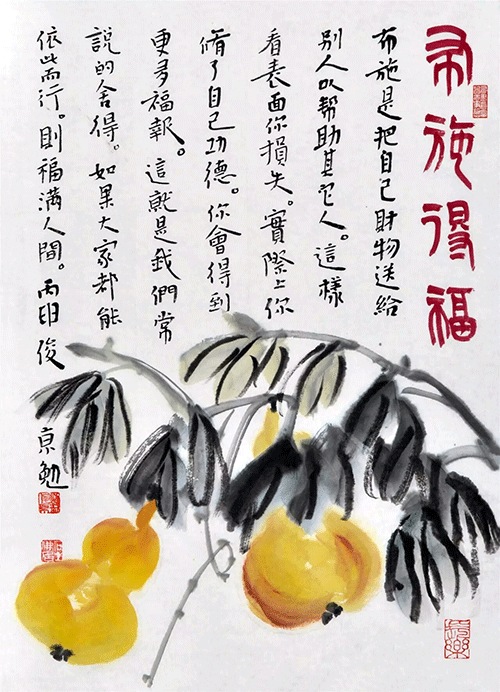 布施得福
布施是把自己財物送給
别人以帮助其它人。這樣
看表面你損失。實際上你
脩了自己功德。你會得到
更多福報。這就是我們常
說的舍得。如果大家都能
依此而行。則福满人間。丙申俊
京勉